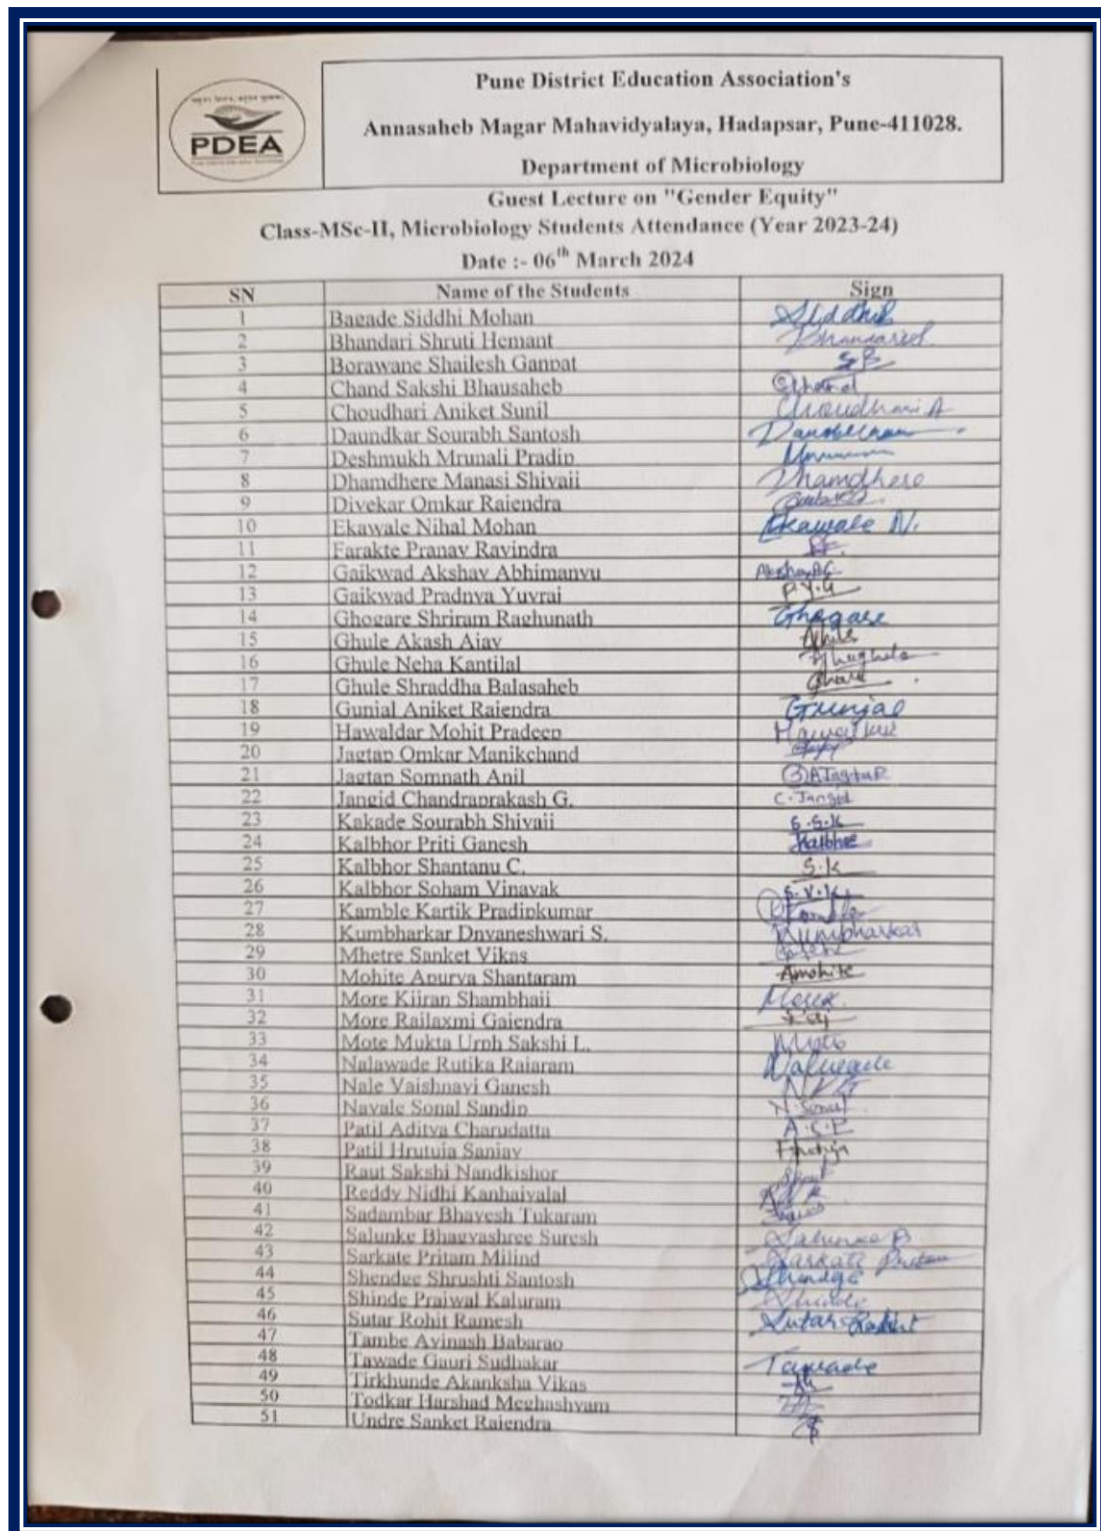 PDEA
Pune District Education Association's
Annasaheb Magar Mahavidyalaya, Hadapsar, Pune-411028.
Department of Microbiology
Guest Lecture on "Gender Equity"
Class-MSc-II, Microbiology Students Attendance (Year 2023-24)
Date :- 06th March 2024
SN Name of the Students Sign
1 Bagade Siddhi Mohan Siddhi
2 Bhandari Shruti Hemant
3 Borawane Shailesh Ganpat SB
4 Chand Sakshi Bhausaheb
5 Choudhari Aniket Sunil Choudhari A
6 Daundkar Sourabh Santosh
7 Deshmukh Mrunali Pradip
8 Dhamdhere Manasi Shivaji Dhamdhere
9 Divekar Omkar Rajendra
10 Ekawale Nihal Mohan Ekawale N.
11 Farakte Pranav Ravindra
12 Gaikwad Akshay Abhimanyu
13 Gaikwad Pradnya Yuvraj P.Y.G
14 Ghogare Shriram Raghunath Ghogare
15 Ghule Akash Ajay
16 Ghule Neha Kantilal
17 Ghule Shraddha Balasaheb
18 Gunjal Aniket Rajendra Gunjal
19 Hawaldar Mohit Pradeep
20 Jagtap Omkar Manikchand
21 Jagtap Somnath Anil
22 Jangid Chandraprakash G. C. Jangid
23 Kakade Sourabh Shivaji S.S.K
24 Kalbhor Priti Ganesh Kalbhor
25 Kalbhor Shantanu C. S.K
26 Kalbhor Soham Vinayak S.V.K
27 Kamble Kartik Pradipkumar
28 Kumbharkar Dnyaneshwari S. Kumbharkar
29 Mhetre Sanket Vikas
30 Mohite Apurva Shantaram Amohite
31 More Kiiran Shambhaji
32 More Rajlaxmi Gajendra
33 Mote Mukta Urph Sakshi L. Mote
34 Nalawade Rutika Rajaram Nalawade
35 Nale Vaishnavi Ganesh NVG
36 Navale Sonal Sandip N. Sonal
37 Patil Aditya Charudatta A.C.P
38 Patil Hrutuja Sanjay
39 Raut Sakshi Nandkishor
40 Reddy Nidhi Kanhaiyalal
41 Sadambar Bhavesh Tukaram
42 Salunke Bhagyashree Suresh Salunke B
43 Sarkate Pritam Milind Sarkate Pritam
44 Shendge Shrushti Santosh Shendge
45 Shinde Prajwal Kaluram Shinde
46 Sutar Rohit Ramesh Sutar Rohit
47 Tambe Avinash Babarao
48 Tawade Gauri Sudhakar Tawade
49 Tirkhunde Akanksha Vikas
50 Todkar Harshad Meghashyam
51 Undre Sanket Rajendra